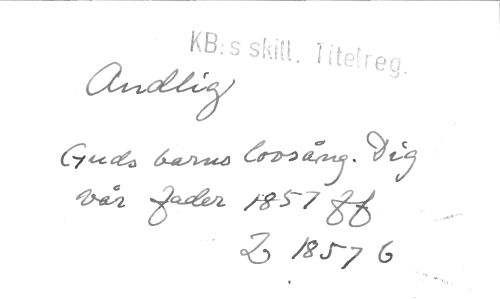 KB:s skill. Titelreg.
Andlig
Guds barns lovsång. Dig
vår fader 1857 ff
2 1857 6